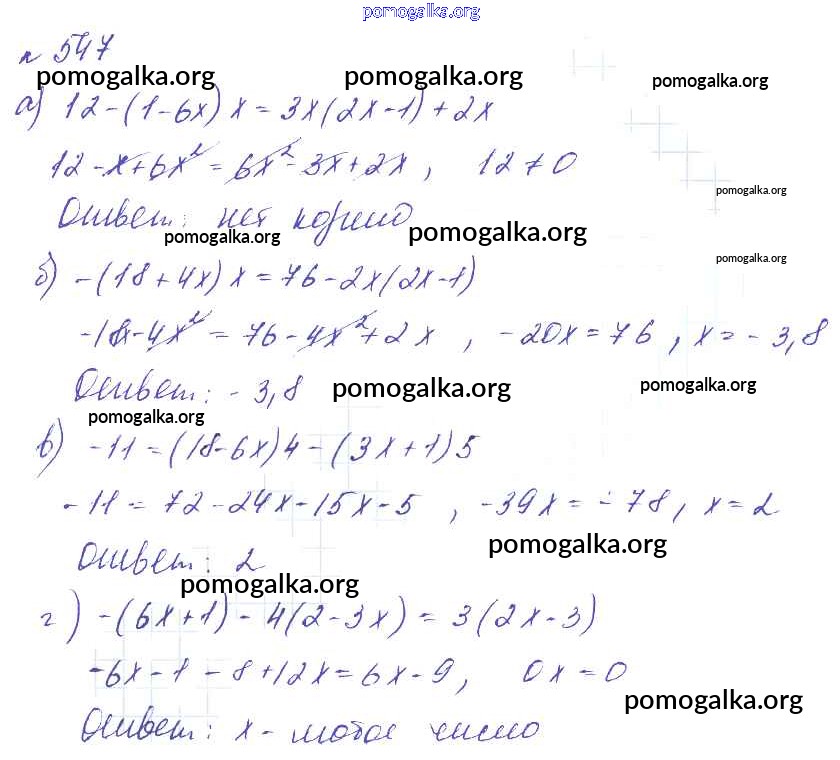 pomogalka.org
n 547
pomogalka.org pomogalka.org pomogalka.org
а) 12-(1-6x)x=3x(2x-1)+2x
12-x+6x²=6x²-3x+2x, 12≠0
pomogalka.org
Ответ: нет корней
pomogalka.org pomogalka.org
pomogalka.org
б) -(18+4x)x=76-2x(2x-1)
-18x-4x²=76-4x²+2x, -20x=76, x=-3,8
Ответ: -3,8
pomogalka.org pomogalka.org
pomogalka.org
в) -11=(18-6x)4-(3x+1)5
-11=72-24x-15x-5, -39x=-78, x=2
pomogalka.org
Ответ: 2
pomogalka.org
г) -(6x+1)-4(2-3x)=3(2x-3)
-6x-1-8+12x=6x-9, 0x=0
pomogalka.org
Ответ: x-любое число